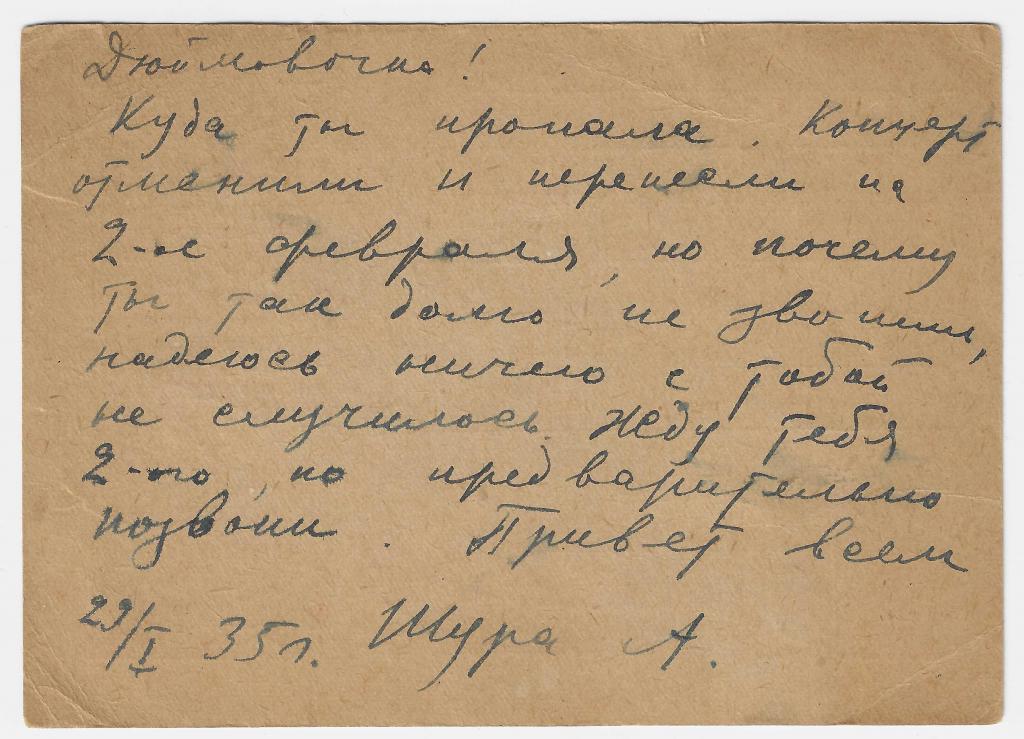 Дюймовочка!
Куда ты пропала. Концерт
отменили и перенесли на
2-е февраля, но почему
ты так долго не звонишь,
надеюсь ничего с тобой
не случилось. Жду тебя
2-го, но предварительно
позвони. Привет всем
29/I 35г. Шура А.